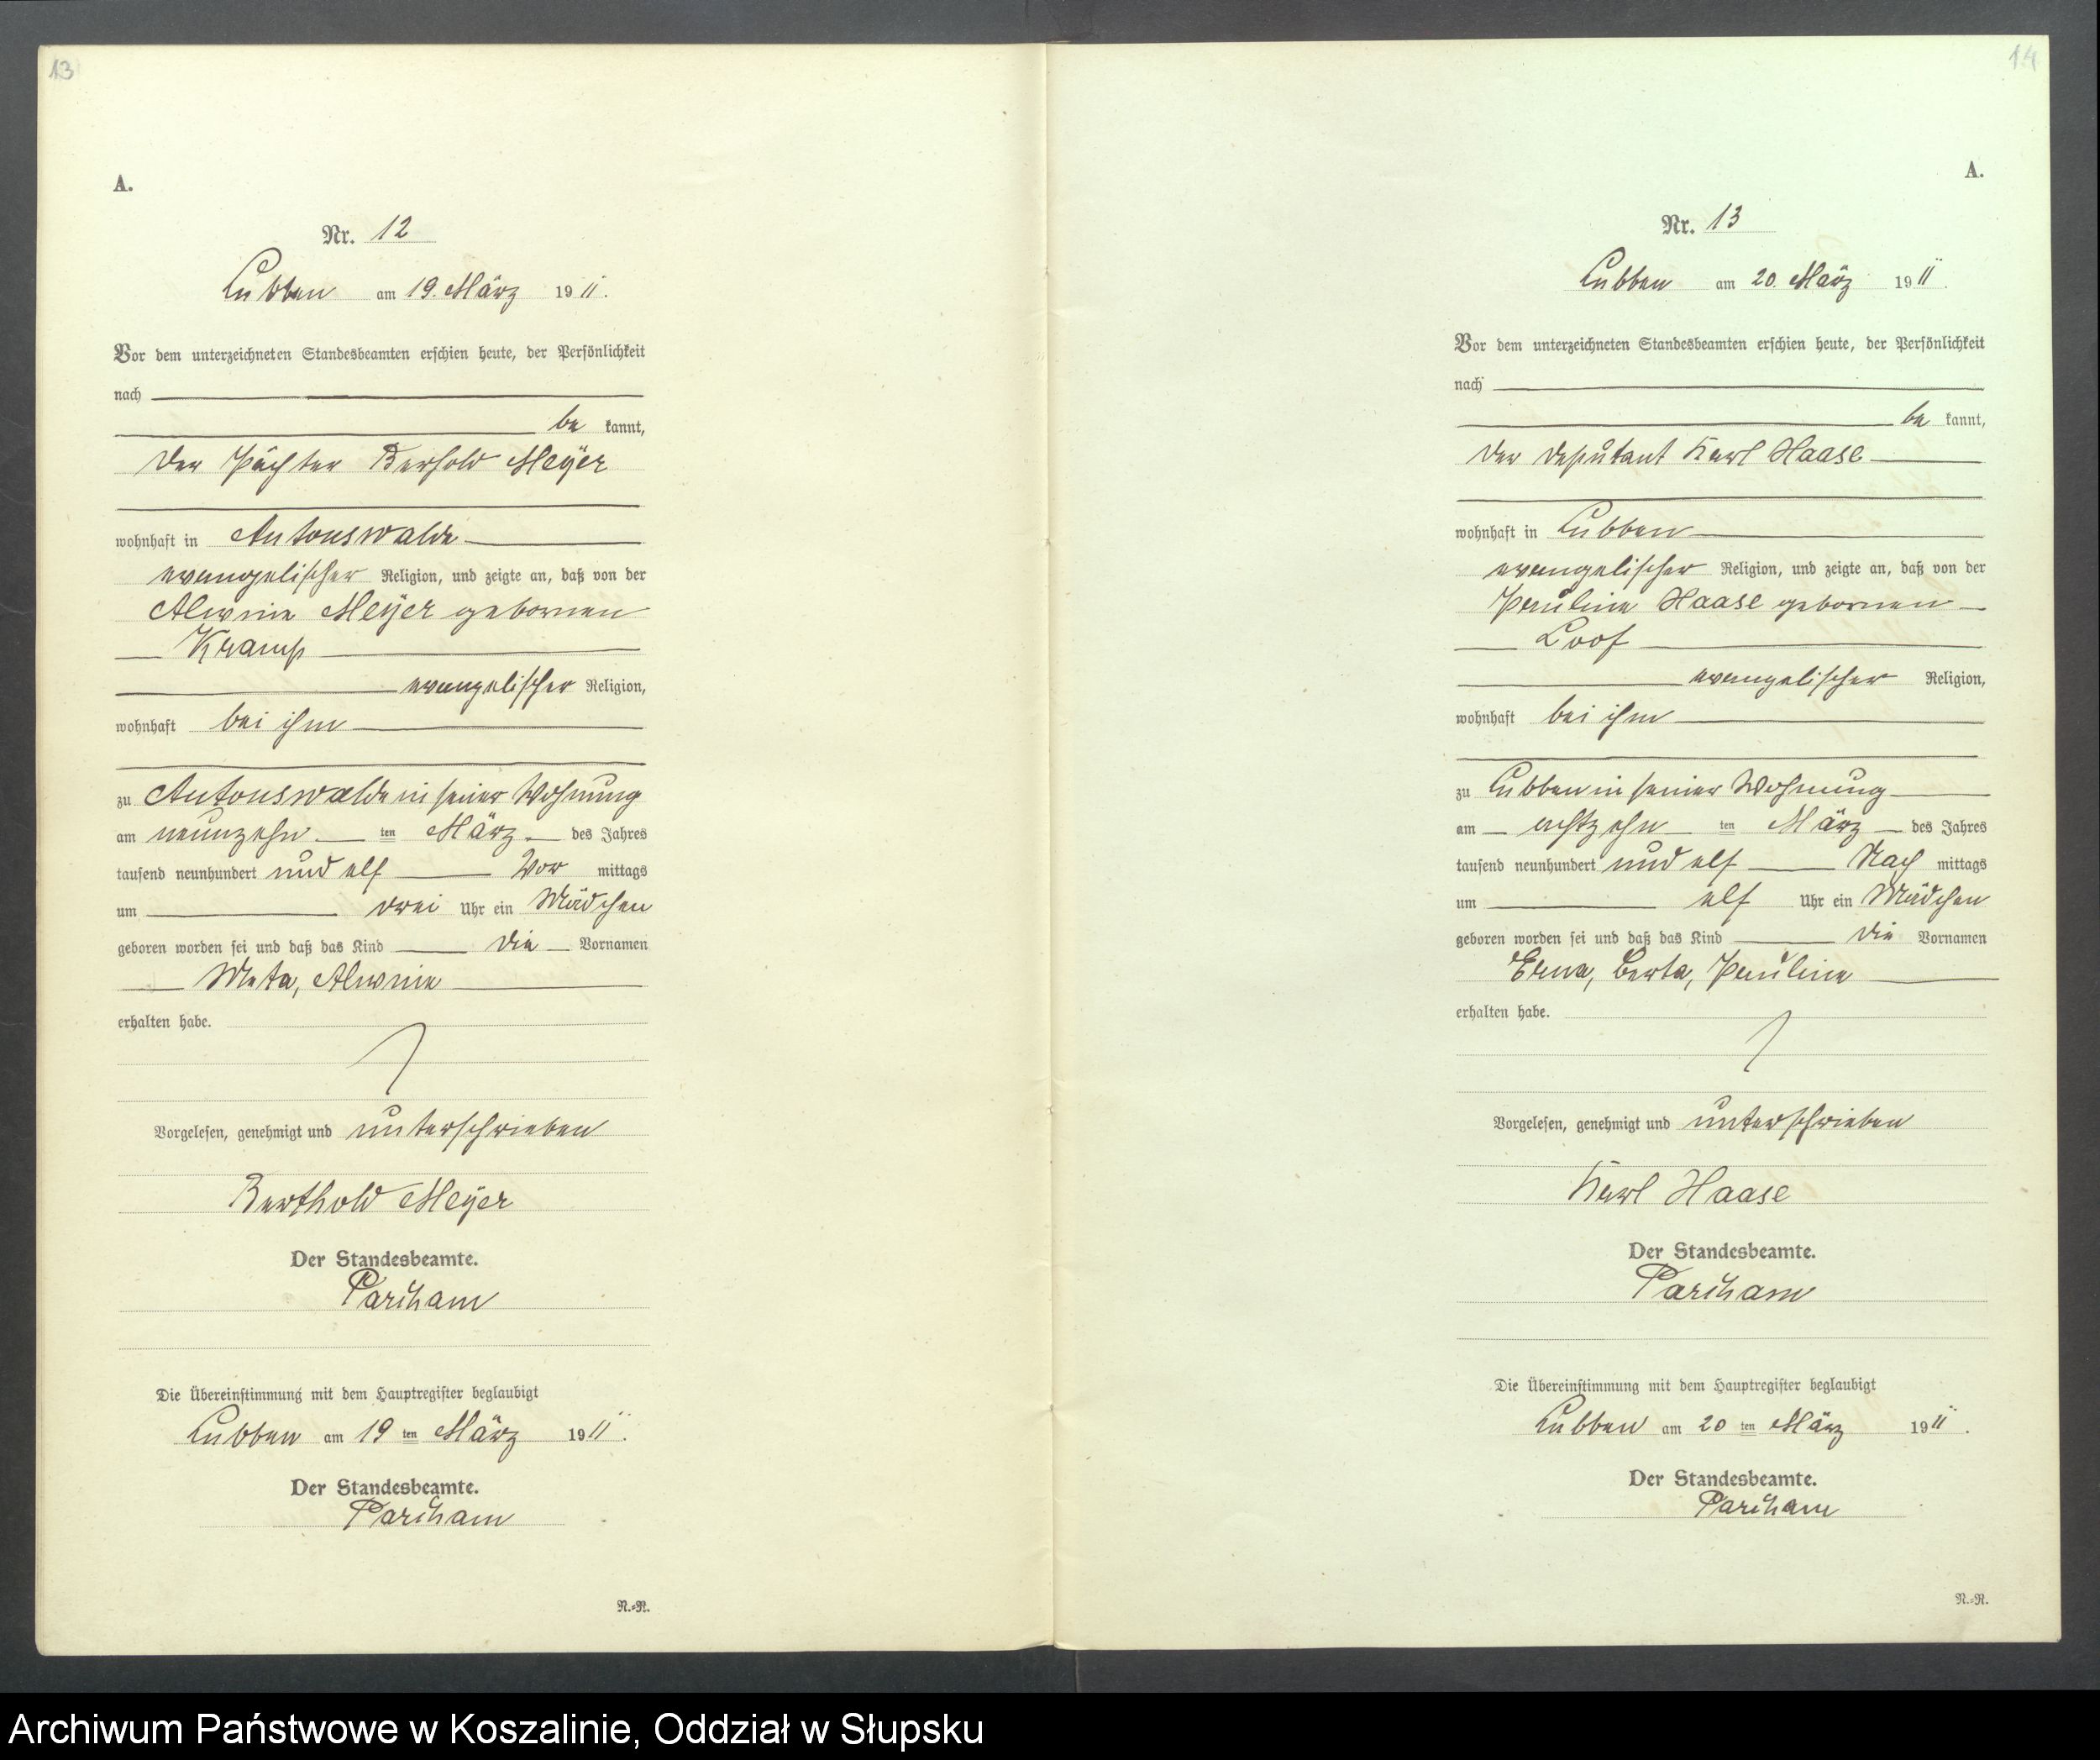 13
A.
Nr. 12
Lubben am 19. März 1911.
Vor dem unterzeichneten Standesbeamten erschien heute, der Persönlichkeit
nach
be kannt,
der Pächter Berhold Meyer
wohnhaft in Antonswalde
evangelischer Religion, und zeigte an, daß von der
Alwine Meyer gebornen
Kramp
evangelischer Religion,
wohnhaft bei ihm
zu Antonswalde in seiner Wohnung
am neunzehn ten März des Jahres
tausend neunhundert und elf Vor mittags
um drei Uhr ein Mädchen
geboren worden sei und daß das Kind die Vornamen
Meta, Alwine
erhalten habe.
Vorgelesen, genehmigt und unterschrieben
Berthold Meyer
Der Standesbeamte.
Die Übereinstimmung mit dem Hauptregister beglaubigt
Lubben am 19 ten März 1911.
Der Standesbeamte.
R.=R.
14
A.
Nr. 13
Lubben am 20. März 1911.
Vor dem unterzeichneten Standesbeamten erschien heute, der Persönlichkeit
nach
be kannt,
der Deputant Karl Haase
wohnhaft in Lubben
evangelischer Religion, und zeigte an, daß von der
Pauline Haase gebornen
Loof
evangelischer Religion,
wohnhaft bei ihm
zu Lubben in seiner Wohnung
am achtzehn ten März des Jahres
tausend neunhundert und elf Nach mittags
um elf Uhr ein Mädchen
geboren worden sei und daß das Kind die Vornamen
Erna, Berta, Pauline
erhalten habe.
Vorgelesen, genehmigt und unterschrieben
Karl Haase
Der Standesbeamte.
Die Übereinstimmung mit dem Hauptregister beglaubigt
Lubben am 20 ten März 1911.
Der Standesbeamte.
R.=R.
Archiwum Państwowe w Koszalinie, Oddział w Słupsku